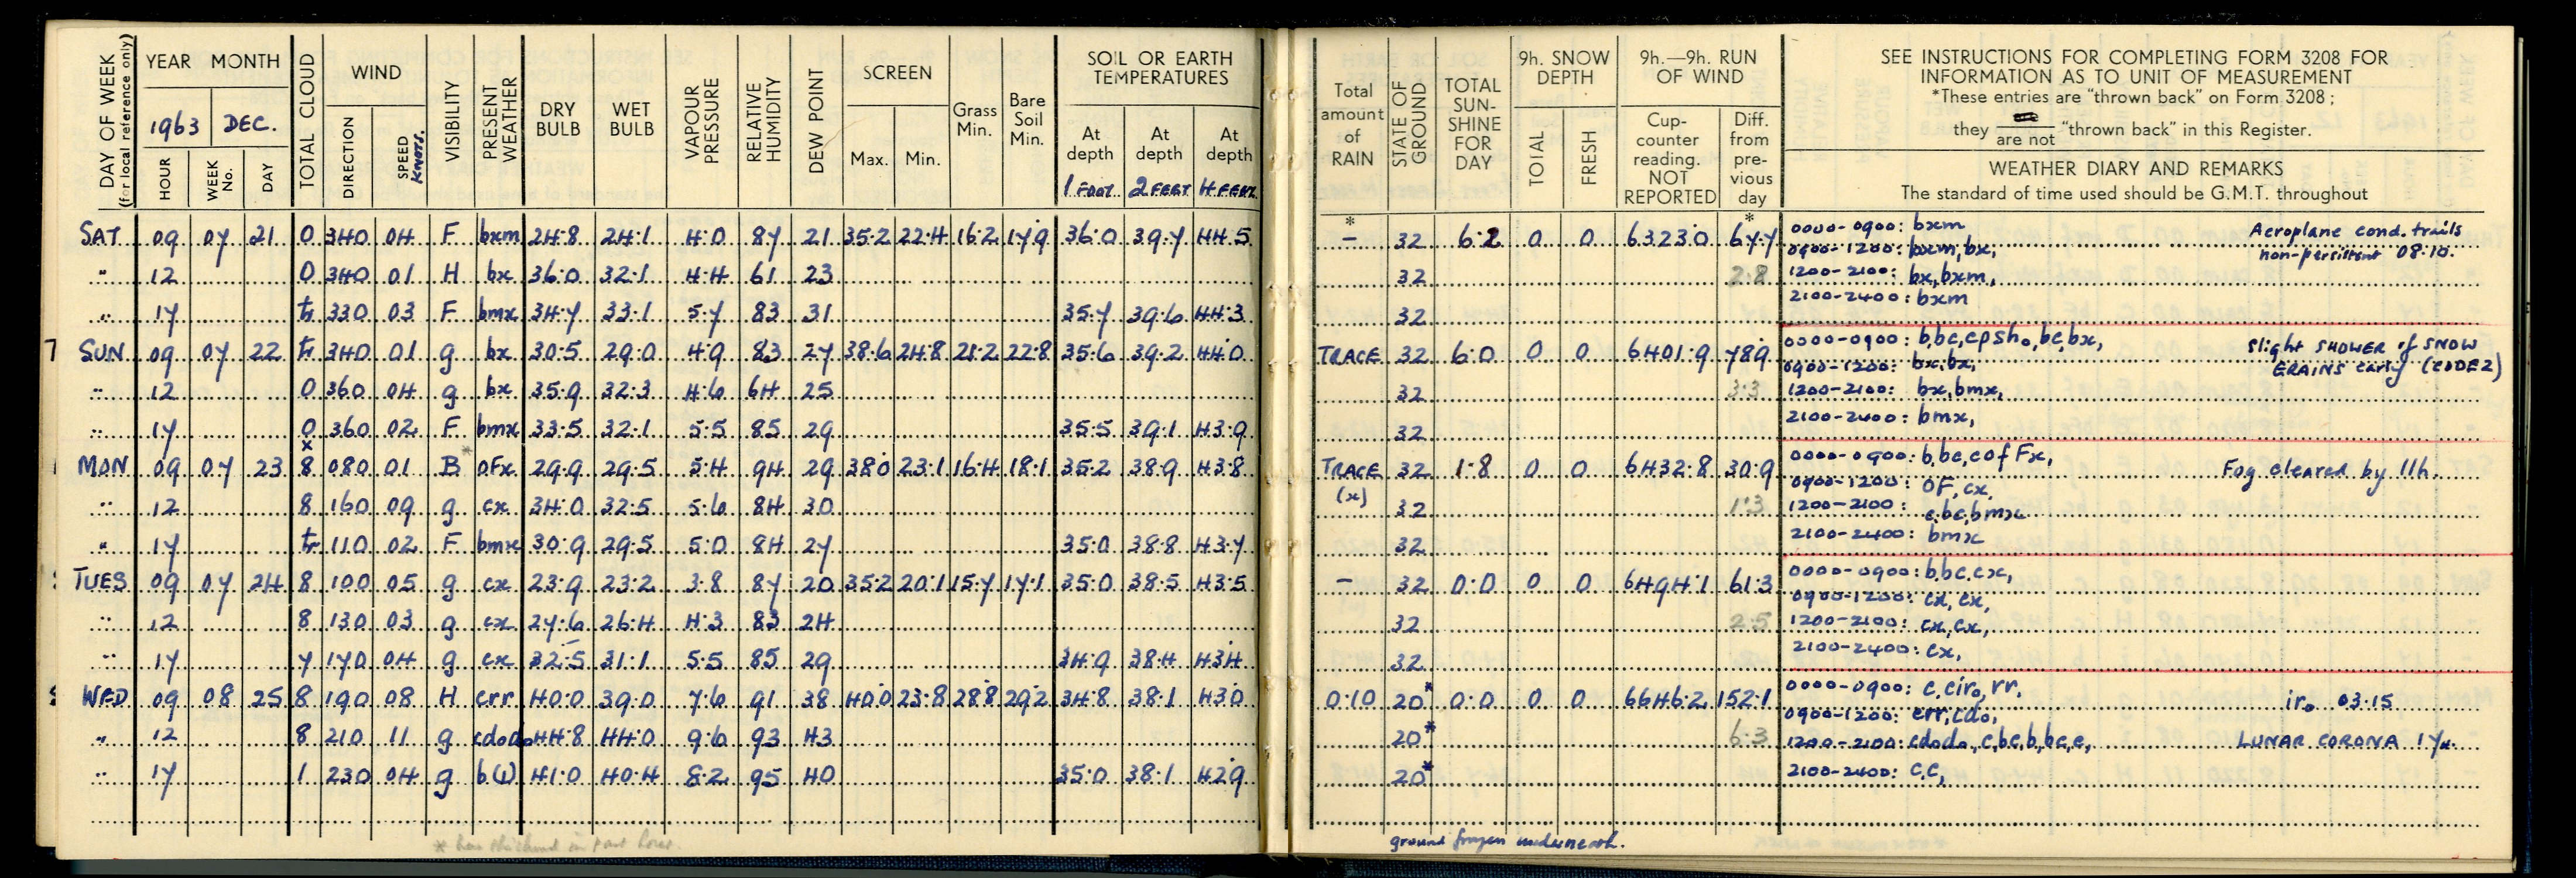 DAY OF WEEK (for local reference only) YEAR MONTH TOTAL CLOUD WIND VISIBILITY PRESENT WEATHER DRY BULB WET BULB VAPOUR PRESSURE RELATIVE HUMIDITY DEW POINT SCREEN Grass Min. Bare Soil Min. SOIL OR EARTH TEMPERATURES
1963 DEC.
HOUR WEEK No. DAY DIRECTION SPEED KNOTS. Max. Min. At depth 1 FOOT. At depth 2 FEET At depth 4 FEET.
Total amount of RAIN STATE OF GROUND TOTAL SUN-SHINE FOR DAY 9h. SNOW DEPTH TOTAL FRESH 9h.—9h. RUN OF WIND Cup-counter reading. NOT REPORTED Diff. from pre-vious day
SEE INSTRUCTIONS FOR COMPLETING FORM 3208 FOR
INFORMATION AS TO UNIT OF MEASUREMENT
*These entries are "thrown back" on Form 3208;
they are not "thrown back" in this Register.
WEATHER DIARY AND REMARKS
The standard of time used should be G.M.T. throughout
SAT 09 07 21 0 340 04 F bxm 24.8 24.1 4.0 87 21 35.2 22.4 16.2 17.9 36.0 39.7 44.5 * – 32 6.2 0 0 6323.0 * 67.7 0000-0900: bxm Aeroplane cond. trails
0900-1200: bxm, bx, non-persistent 08.10.
" 12 0 340 01 H bx 36.0 32.1 4.4 61 23 32 2.8 1200-2100: bx, bxm,
2100-2400: bxm
" 17 tr 330 03 F bmx 34.7 33.1 5.7 83 31 35.7 39.6 44.3 32
SUN 09 07 22 tr 340 01 g bx 30.5 29.0 4.9 83 27 38.6 24.8 21.2 22.8 35.6 39.2 44.0 TRACE 32 6.0 0 0 6401.9 78.9 0000-0900: b,bc,cpsho,bc,bx, Slight SHOWER of SNOW
0900-1200: bx,bx, GRAINS early (CODE 2)
" 12 0 360 04 g bx 35.9 32.3 4.6 64 25 32 3.3 1200-2100: bx,bmx,
" 17 0 360 02 F bmx 33.5 32.1 5.5 85 29 35.5 39.1 43.9 32 2100-2400: bmx,
MON 09 07 23 x 8 080 01 B * OFx 29.9 29.5 5.4 94 29 38.0 23.1 16.4 18.1 35.2 38.9 43.8 TRACE (x) 32 1.8 0 0 6432.8 30.9 0000-0900: b,bc,cofFx, Fog cleared by 11h.
0900-1200: OF, cx,
" 12 8 160 09 g cx 34.0 32.5 5.6 84 30 32 1.3 1200-2100: c,bc,bmx
" 17 tr 110 02 F bmx 30.9 29.5 5.0 84 27 35.0 38.8 43.7 32 2100-2400: bmx
TUES 09 07 24 8 100 05 g cx 23.9 23.2 3.8 87 20 35.2 20.1 15.7 17.1 35.0 38.5 43.5 – 32 0.0 0 0 6494.1 61.3 0000-0900: b,bc,cx,
0900-1200: cx, cx,
" 12 8 130 03 g cx 27.6 26.4 4.3 83 24 32 2.5 1200-2100: cx,cx,
" 17 7 170 04 g cx 32.5 31.1 5.5 85 29 34.9 38.4 43.4 32 2100-2400: cx,
WED 09 08 25 8 190 08 H crr 40.0 39.0 7.6 91 38 40.0 23.8 28.8 29.2 34.8 38.1 43.0 0.10 20* 0.0 0 0 6646.2 152.1 0000-0900: c,ciro,rr, iro 03.15
0900-1200: crr,cdo,
" 12 8 210 11 g cdodo 44.8 44.0 9.6 93 43 20* 6.3 1200-2100: cdodo, c,bc,b,bc,c, LUNAR CORONA 17h.
" 17 1 230 04 g b(l) 41.0 40.4 8.2 95 40 35.0 38.1 42.9 20* 2100-2400: c,c,
ground frozen underneath.